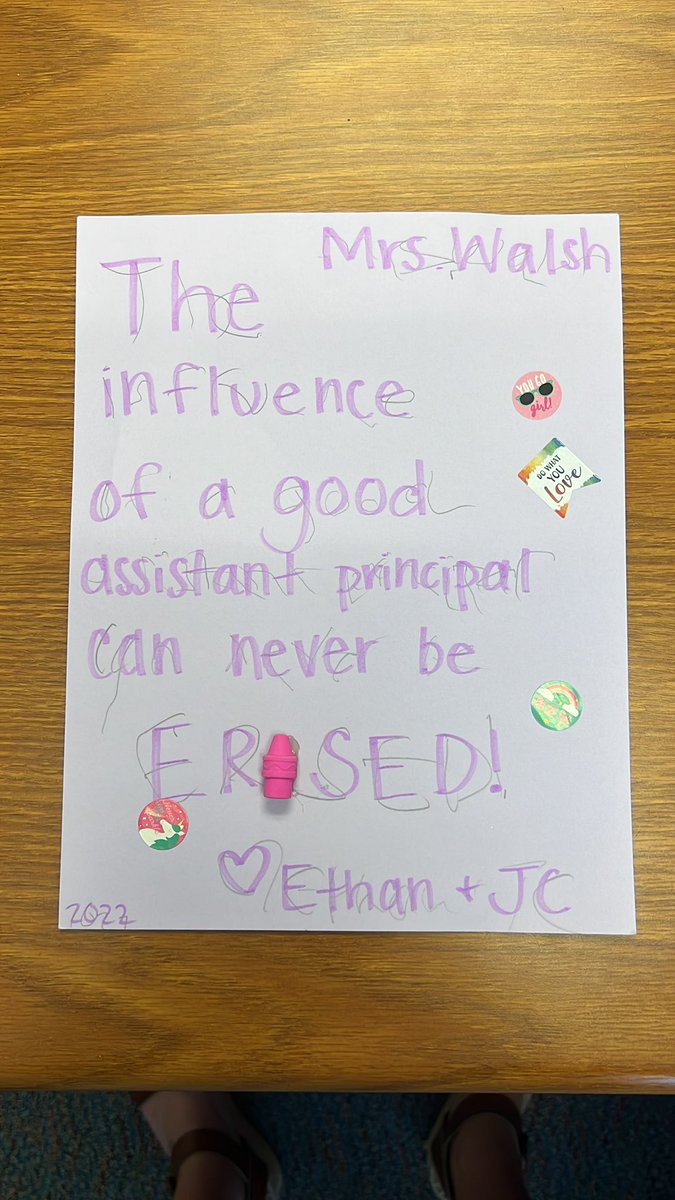 Mrs. Walsh
The
influence
YOU GO
girl!
of a good
DO WHAT
YOU
Love
assistant principal
can never be
ERSED!
♡ Ethan + JC
2022